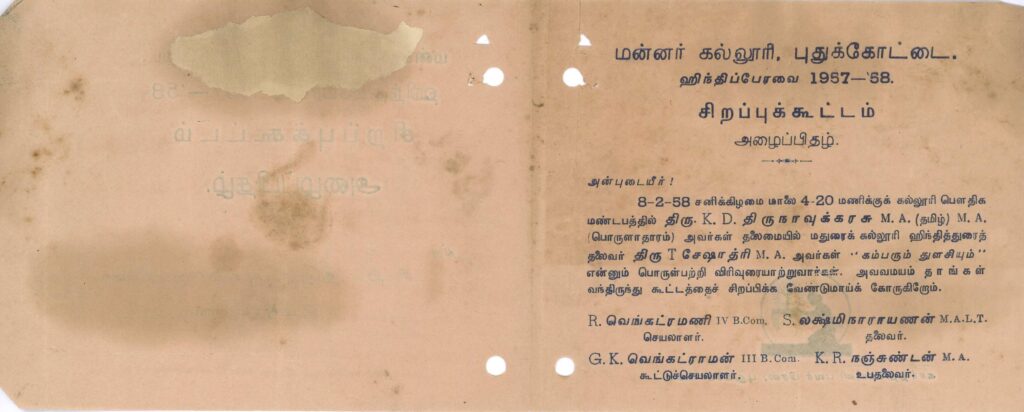 மன்னர் கல்லூரி, புதுக்கோட்டை.
ஹிந்திப்பேரவை 1957—'58.
சிறப்புக்கூட்டம்
அழைப்பிதழ்.
அன்புடையீர் !
8-2-58 சனிக்கிழமை மாலை 4-20 மணிக்குக் கல்லூரி பௌதிக
மண்டபத்தில் திரு. K. D. திருநாவுக்கரசு M. A. (தமிழ்) M. A.
(பொருளாதாரம்) அவர்கள் தலைமையில் மதுரைக் கல்லூரி ஹிந்தித்துரைத்
தலைவர் திரு T சேஷாத்ரி M. A. அவர்கள் "கம்பரும் துளசியும்"
என்னும் பொருள்பற்றி விரிவுரையாற்றுவார்கள். அவ்வமயம் தாங்கள்
வந்திருந்து கூட்டத்தைச் சிறப்பிக்க வேண்டுமாய்க் கோருகிறேம்.
R. வெங்கட்ரமணி IV B.Com. S. லக்ஷ்மிநாராயணன் M.A.L.T.
செயலாளர். தலைவர்.
G. K. வெங்கட்ராமன் III B.Com. K. R. நஞ்சுண்டன் M.A.
கூட்டுச்செயலாளர். உபதலைவர்.
சிறப்புக்கூட்டம்
அழைப்பிதழ்.